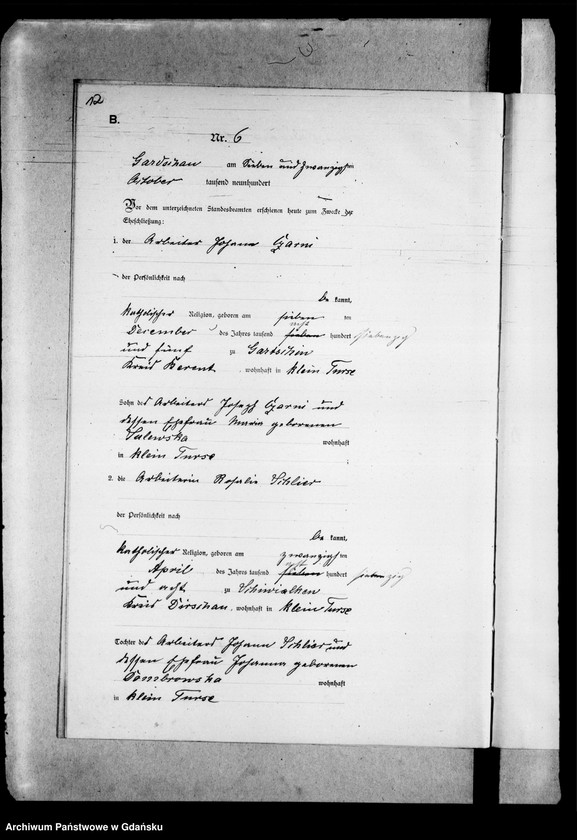 12
B.
Nr. 6
Gardschau am Sieben und zwanzigsten
October tausend neunhundert
Vor dem unterzeichneten Standesbeamten erschienen heute zum Zwecke der
Eheschließung:
1. der Arbeiter Johann Czarni
der Persönlichkeit nach
be kannt,
katholischer Religion, geboren am sieben ten
December des Jahres tausend acht hundert siebenzig
und fünf zu Gartschin
Kreis Berent, wohnhaft in klein Turse
Sohn des Arbeiters Joseph Czarni und
dessen Ehefrau Maria geborenen
Salewska wohnhaft
in klein Turse
2. die Arbeiterin Rosalie Schlier
der Persönlichkeit nach
be kannt,
katholischer Religion, geboren am zwanzigsten
April des Jahres tausend acht hundert siebenzig
und acht zu Schiwialken
Kreis Dirschau, wohnhaft in klein Turse
Tochter des Arbeiters Johann Schlier und
dessen Ehefrau Johanna geborenen
Dombrowska wohnhaft
in klein Turse
Archiwum Państwowe w Gdańsku